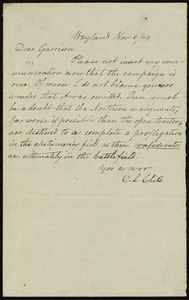 Wayland Nov 6/64
Dear Garrison
Please not insert my com-
munication now that the campaign is
over. Of course I do not blame you or
wonder that it was omitted. There cannot
be a doubt that the Northern
far worse if possible than the open traitors
are destined to as complete a profligation
in the electioneering field as their confederates
are ultimately in the battlefield.
Yrs as ever
D. L. Child